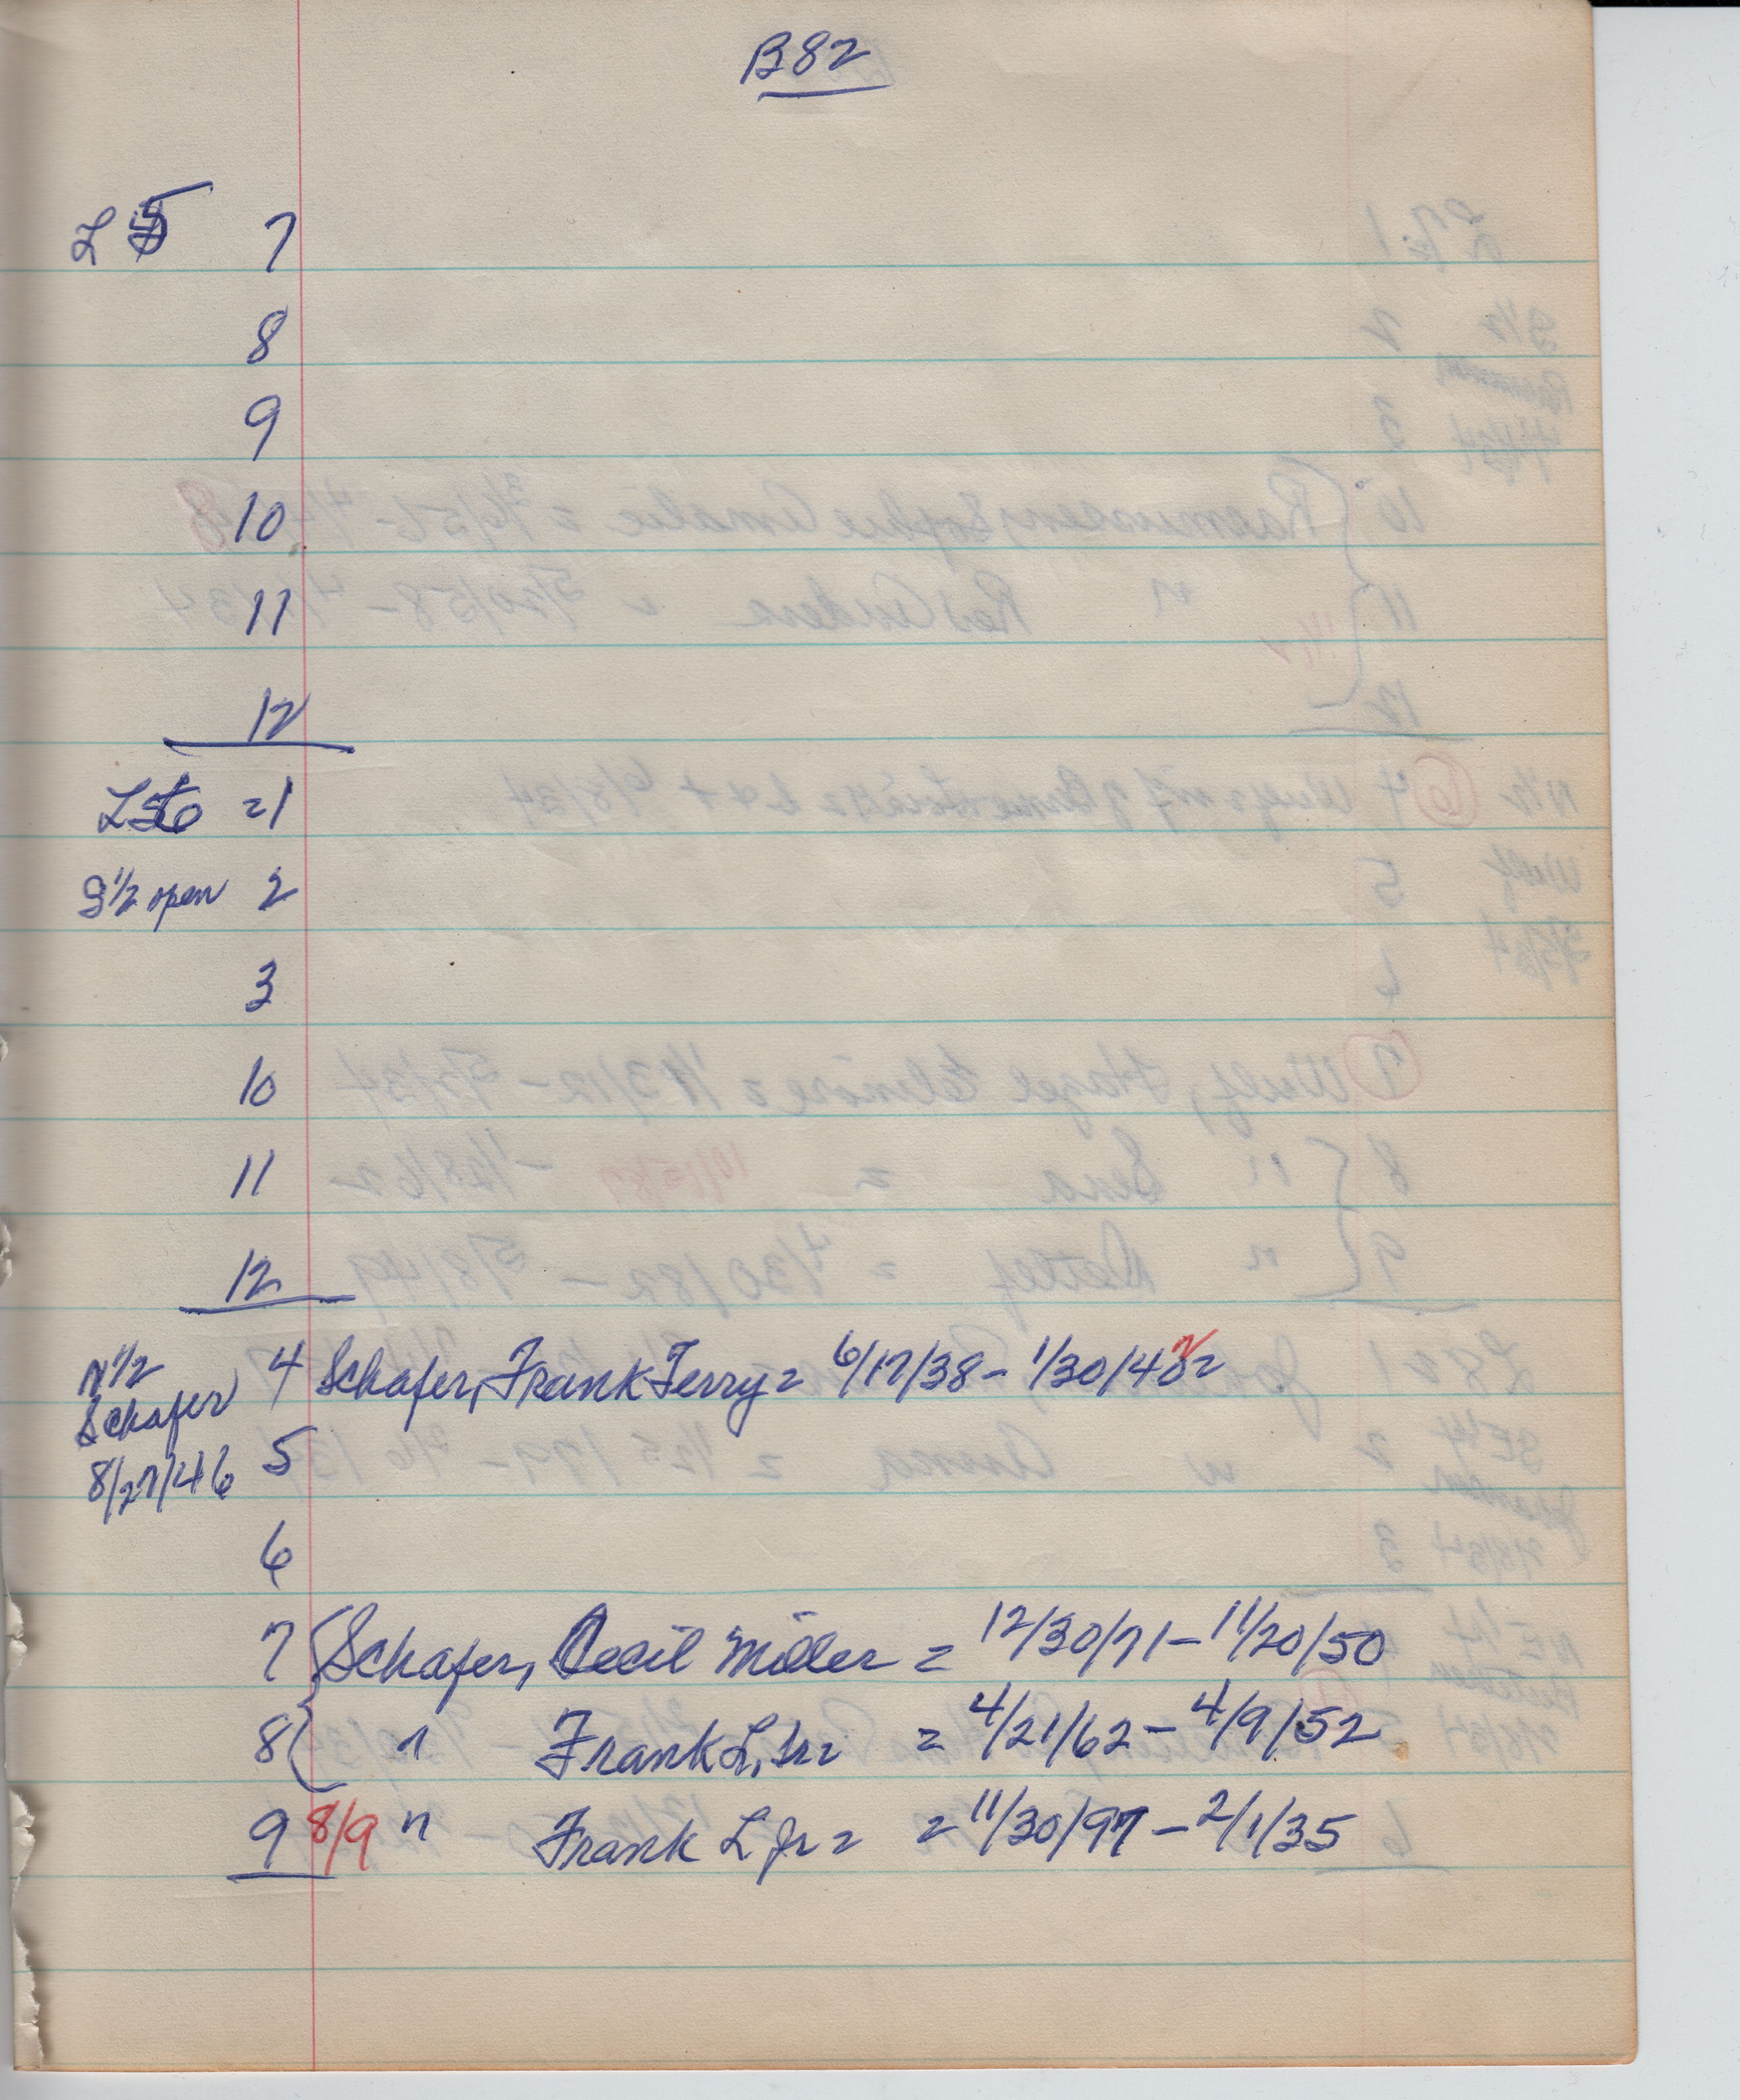 B82
L 5 7
8
9
10
11
12
L 6 = 1
S 1/2 open 2
3
10
11
12
N 1/2 4 Schafer, Frank Terry = 6/17/38 - 1/30/42
Schafer
8/27/46 5
6
7 { Schafer, Cecil Miller = 12/30/71 - 11/20/50
8 { " Frank L, Sr = = 4/21/62 - 4/9/52
9 8/9 " Frank L Jr = = 11/30/97 - 2/1/35